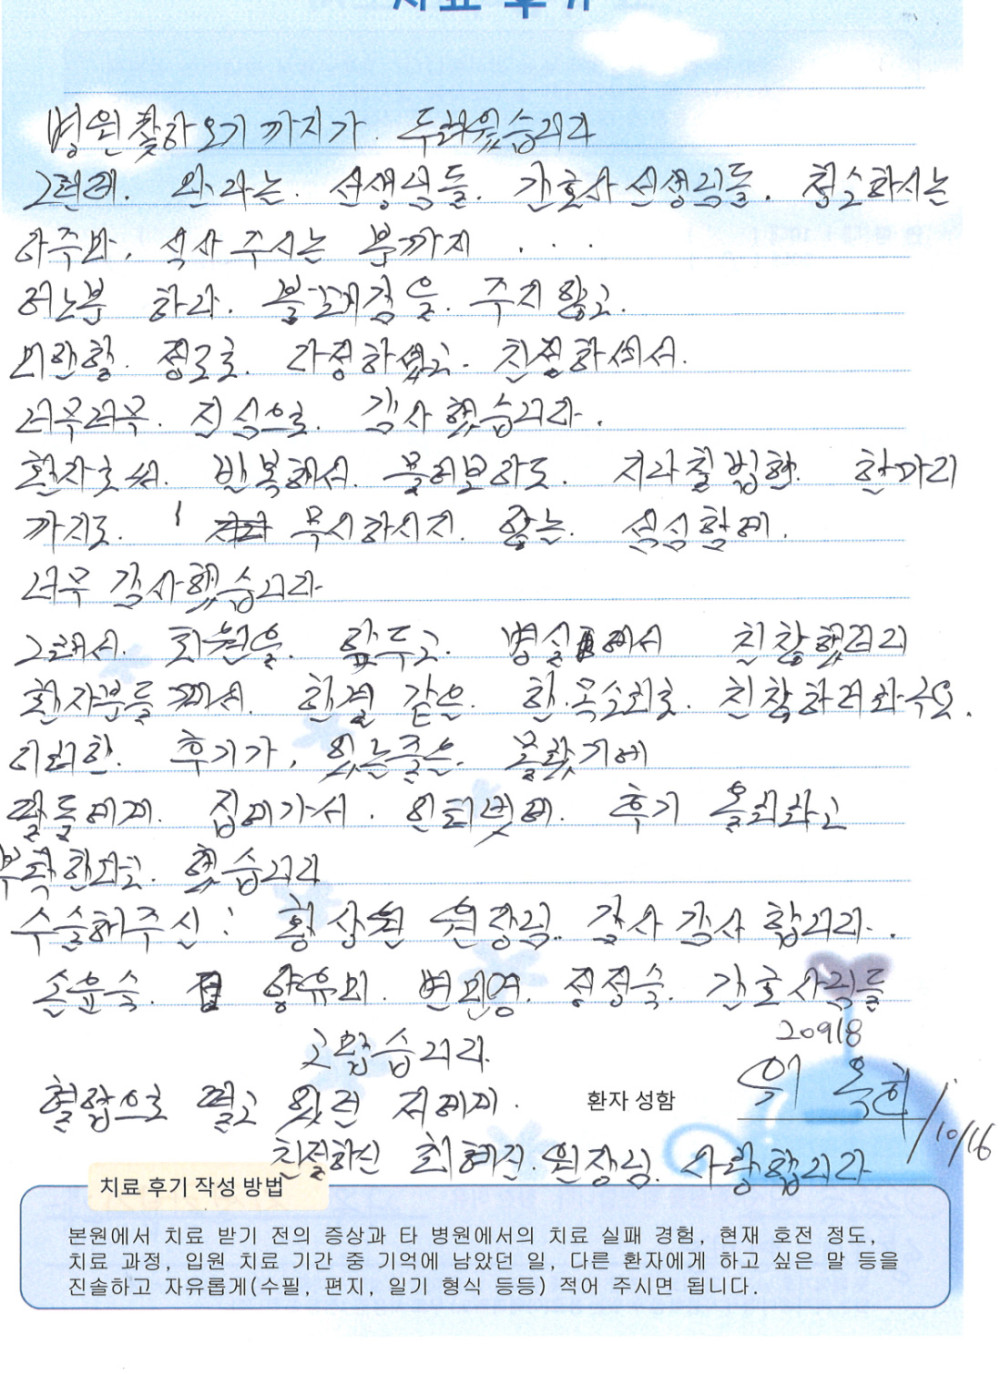 치료 후기
병원 찾아오기 까지가. 두려웠습니다
그런데. 의사는. 선생님들. 간호사 선생님들. 청소하시는
아주마, 식사 주시는 분까지 ...
어느분 하나. 불쾌감을. 주지 않고.
미안할. 정도로. 다정하셨고. 친절하셔서.
너무너무. 진심으로. 감사했습니다.
환자로써. 반복해서. 물어보아도. 지나칠법한. 한마디
까지도. 무시하시지. 않는. 섬심함에.
너무 감사했습니다
그래서. 퇴원을. 앞두고. 병실에서 칭찬했더니
환자분들께서. 한결 같은. 한.목소리로. 칭찬하더라구요.
이러한. 후기가, 있는줄은. 몰랐기에
딸들에게. 집에가서. 인터넷에. 후기 올리라고
부탁한다고. 했습니다
수술해주신: 황상원 원장님. 감사 감사 합니다..
손윤숙. 양유미. 변미영. 정정숙. 간호사님들
고맙습니다.
20918
혈압으로 떨고 있던 저에게.
환자 성함
옥희
/10/16
친절하신 최혜진. 원장님. 사랑합니다
치료 후기 작성 방법
본원에서 치료 받기 전의 증상과 타 병원에서의 치료 실패 경험, 현재 호전 정도,
치료 과정, 입원 치료 기간 중 기억에 남았던 일, 다른 환자에게 하고 싶은 말 등을
진솔하고 자유롭게(수필, 편지, 일기 형식 등등) 적어 주시면 됩니다.